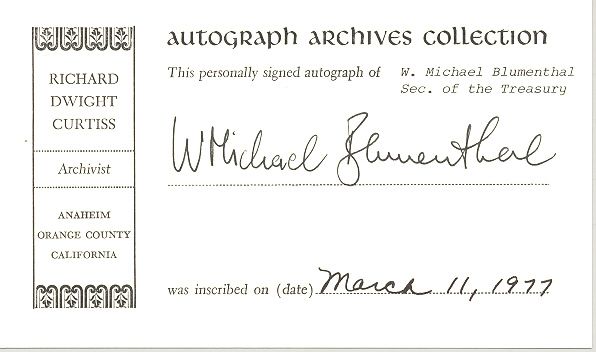 RICHARD
DWIGHT
CURTISS
Archivist
ANAHEIM
ORANGE COUNTY
CALIFORNIA
AUTOGRAPH ARCHIVES COLLECTION
This personally signed autograph of W. Michael Blumenthal
Sec. of the Treasury
W Michael Blumenthal
was inscribed on (date) March 11, 1977